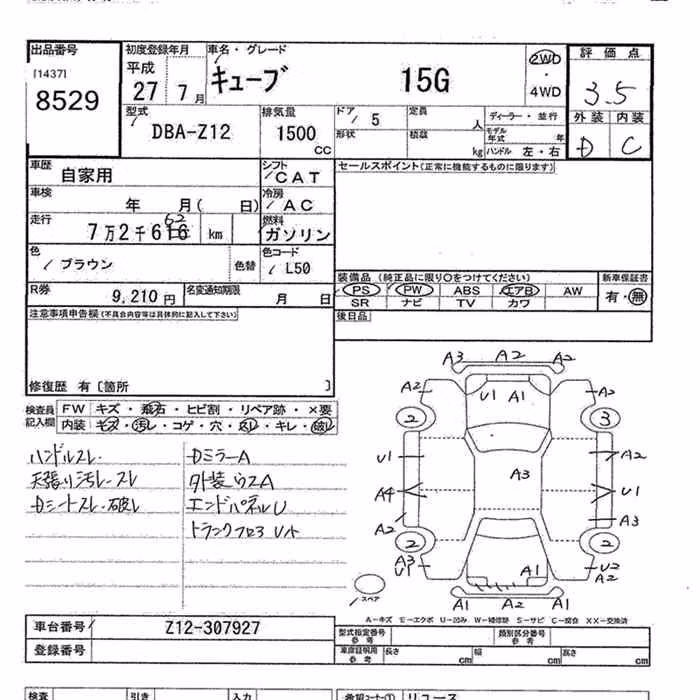 出品番号 初度登録年月 車名・グレード 評価点
[1437] 平成 キューブ 15G 2WD・4WD 3.5
8529 27 7月
外装 内装
D C
型式 排気量 ドア 5 定員 人 ディーラー・並行
DBA-Z12 1500 CC 形状 積載 kg モデル年式 年
ハンドル 左・右
車歴 自家用 シフト CAT セールスポイント(正常に機能するものに限ります)
車検 年 月( 日) 冷房 AC
走行 7万2千616 62 km 燃料 ガソリン
色 ブラウン 色替 色コード L50
装備品 (純正品に限り○をつけてください) 新車保証書
PS PW ABS エアB AW 有・無
SR ナビ TV カワ
R券 9,210円 名変通知期限 月 日
注意事項申告欄(不具合内容等は具体的に記入して下さい) 後日品
修復歴 有〔箇所 〕
検査員記入欄 FW キズ・飛石・ヒビ割・リペア跡・×要
内装 キズ・汚レ・コゲ・穴・ ・キレ・破レ
ハンドルスレ Dミラー A
天張り汚レ・スレ 外装ウスA
Dシートスレ・破レ エンドパネルU
トランクフロアU
A3 A2 A2
A2 U1 A1 A2
2 3
U1 A2
A3
A4 U1
A2 A3
2 2
A3 U1 A1 U2 A2
スペア
A1 A2 A1
A－キズ E－エクボ U－凹み W－補修跡 S－サビ C－腐食 XX－交換済
車台番号 Z12-307927
登録番号
型式指定番号 参考 類別区分番号 参考
車庫証明用 参考 長さ cm 幅 cm 高さ cm
検査 引き 入力 希望コーナー① リユース